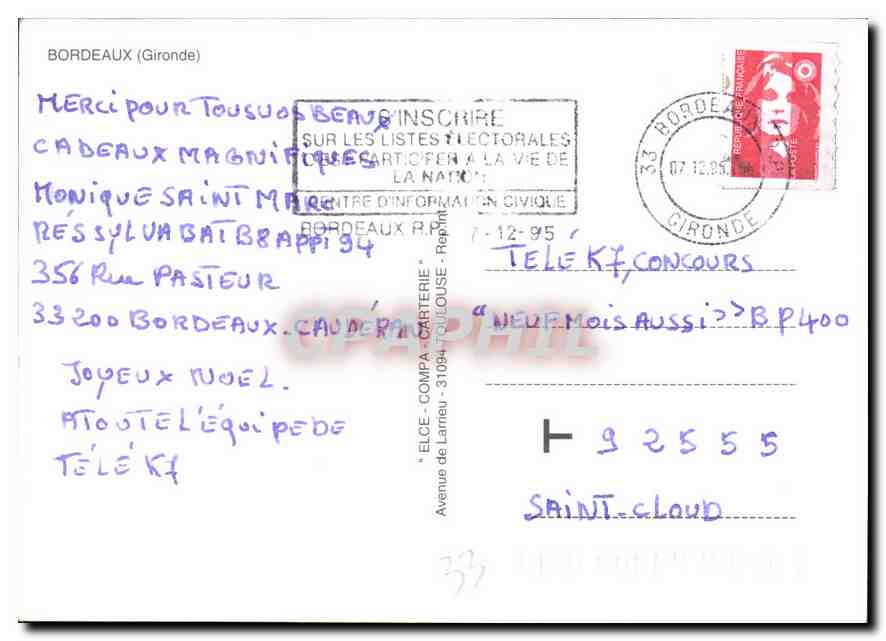 BORDEAUX (Gironde)
MERCI POUR TOUS VOS BEAUX
CADEAUX MAGNIFIQUES
MONIQUE SAINT MARC
RÉS SYLVABAT B8 APPT 94
356 Rue PASTEUR
33200 BORDEAUX-CAUDÉRAN
JOYEUX NOEL.
A TOUTE L'ÉQUIPE DE
TÉLÉ K7
S'INSCRIRE
SUR LES LISTES ELECTORALES
C'EST PARTICIPER A LA VIE DE
LA NATION
CENTRE D'INFORMATION CIVIQUE
BORDEAUX R.P. 7-12-95
33 BORDEAUX
07.12.95
GIRONDE
REPUBLIQUE FRANÇAISE
LA POSTE
" ELCE - COMPA - CARTERIE "
Avenue de Larrieu - 31094 TOULOUSE - Rep. Int
TÉLÉ K7, CONCOURS
"NEUF MOIS AUSSI>> BP400
T 92555
SAINT-CLOUD
33
CPAPHIL